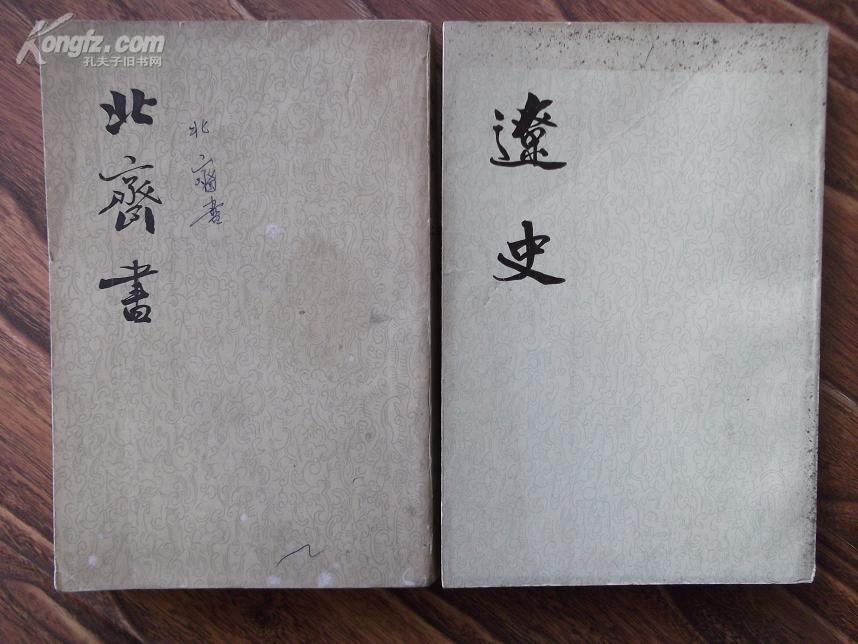 Kongfz.com
孔夫子旧书网
北齊書
北齊書
遼史